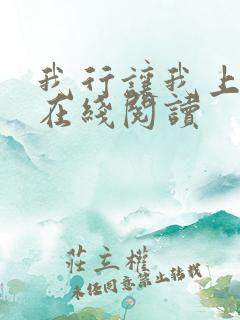 我行讓我上
在綫閱讀
莊立權
未经同意禁止转载